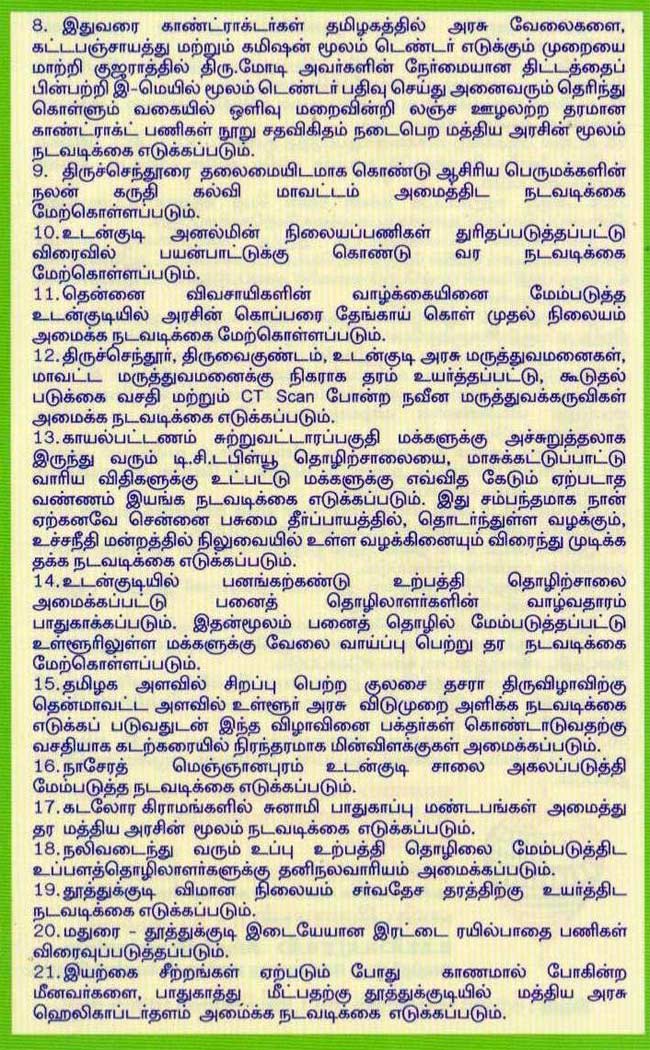 8. இதுவரை காண்ட்ராக்டர்கள் தமிழகத்தில் அரசு வேலைகளை,
கட்டபஞ்சாயத்து மற்றும் கமிஷன் மூலம் டெண்டர் எடுக்கும் முறையை
மாற்றி குஜராத்தில் திரு.மோடி அவர்களின் நேர்மையான திட்டத்தைப்
பின்பற்றி இ-மெயில் மூலம் டெண்டர் பதிவு செய்து அனைவரும் தெரிந்து
கொள்ளும் வகையில் ஒளிவு மறைவின்றி லஞ்ச ஊழலற்ற தரமான
காண்ட்ராக்ட் பணிகள் நூறு சதவிகிதம் நடைபெற மத்திய அரசின் மூலம்
நடவடிக்கை எடுக்கப்படும்.
9. திருச்செந்தூரை தலைமையிடமாக கொண்டு ஆசிரிய பெருமக்களின்
நலன் கருதி கல்வி மாவட்டம் அமைத்திட நடவடிக்கை
மேற்கொள்ளப்படும்.
10.உடன்குடி அனல்மின் நிலையப்பணிகள் துரிதப்படுத்தப்பட்டு
விரைவில் பயன்பாட்டுக்கு கொண்டு வர நடவடிக்கை
மேற்கொள்ளப்படும்.
11.தென்னை விவசாயிகளின் வாழ்க்கையினை மேம்படுத்த
உடன்குடியில் அரசின் கொப்பரை தேங்காய் கொள் முதல் நிலையம்
அமைக்க நடவடிக்கை மேற்கொள்ளப்படும்.
12.திருச்செந்தூர், திருவைகுண்டம், உடன்குடி அரசு மருத்துவமனைகள்,
மாவட்ட மருத்துவமனைக்கு நிகராக தரம் உயர்த்தப்பட்டு, கூடுதல்
படுக்கை வசதி மற்றும் CT Scan போன்ற நவீன மருத்துவக்கருவிகள்
அமைக்க நடவடிக்கை எடுக்கப்படும்.
13.காயல்பட்டணம் சுற்றுவட்டாரப்பகுதி மக்களுக்கு அச்சுறுத்தலாக
இருந்து வரும் டி.சி.டபிள்யூ தொழிற்சாலையை, மாசுக்கட்டுப்பாட்டு
வாரிய விதிகளுக்கு உட்பட்டு மக்களுக்கு எவ்வித கேடும் ஏற்படாத
வண்ணம் இயங்க நடவடிக்கை எடுக்கப்படும். இது சம்பந்தமாக நான்
ஏற்கனவே சென்னை பசுமை தீர்ப்பாயத்தில், தொடர்ந்துள்ள வழக்கும்,
உச்சநீதி மன்றத்தில் நிலுவையில் உள்ள வழக்கினையும் விரைந்து முடிக்க
தக்க நடவடிக்கை எடுக்கப்படும்.
14.உடன்குடியில் பனங்கற்கண்டு உற்பத்தி தொழிற்சாலை
அமைக்கப்பட்டு பனைத் தொழிலாளர்களின் வாழ்வதாரம்
பாதுகாக்கப்படும். இதன்மூலம் பனைத் தொழில் மேம்படுத்தப்பட்டு
உள்ளூரிலுள்ள மக்களுக்கு வேலை வாய்ப்பு பெற்று தர நடவடிக்கை
மேற்கொள்ளப்படும்.
15.தமிழக அளவில் சிறப்பு பெற்ற குலசை தசரா திருவிழாவிற்கு
தென்மாவட்ட அளவில் உள்ளூர் அரசு விடுமுறை அளிக்க நடவடிக்கை
எடுக்கப் படுவதுடன் இந்த விழாவினை பக்தர்கள் கொண்டாடுவதற்கு
வசதியாக கடற்கரையில் நிரந்தரமாக மின்விளக்குகள் அமைக்கப்படும்.
16.நாசேரத் மெஞ்ஞானபுரம் உடன்குடி சாலை அகலப்படுத்தி
மேம்படுத்த நடவடிக்கை எடுக்கப்படும்.
17.கடலோர கிராமங்களில் சுனாமி பாதுகாப்பு மண்டபங்கள் அமைத்து
தர மத்திய அரசின் மூலம் நடவடிக்கை எடுக்கப்படும்.
18.நலிவடைந்து வரும் உப்பு உற்பத்தி தொழிலை மேம்படுத்திட
உப்பளத்தொழிலாளர்களுக்கு தனிநலவாரியம் அமைக்கப்படும்.
19.தூத்துக்குடி விமான நிலையம் சர்வதேச தரத்திற்கு உயர்த்திட
நடவடிக்கை எடுக்கப்படும்.
20.மதுரை - தூத்துக்குடி இடையேயான இரட்டை ரயில்பாதை பணிகள்
விரைவுப்படுத்தப்படும்.
21.இயற்கை சீற்றங்கள் ஏற்படும் போது காணமால் போகின்ற
மீனவர்களை, பாதுகாத்து மீட்பதற்கு தூத்துக்குடியில் மத்திய அரசு
ஹெலிகாப்டர்தளம் அமைக்க நடவடிக்கை எடுக்கப்படும்.